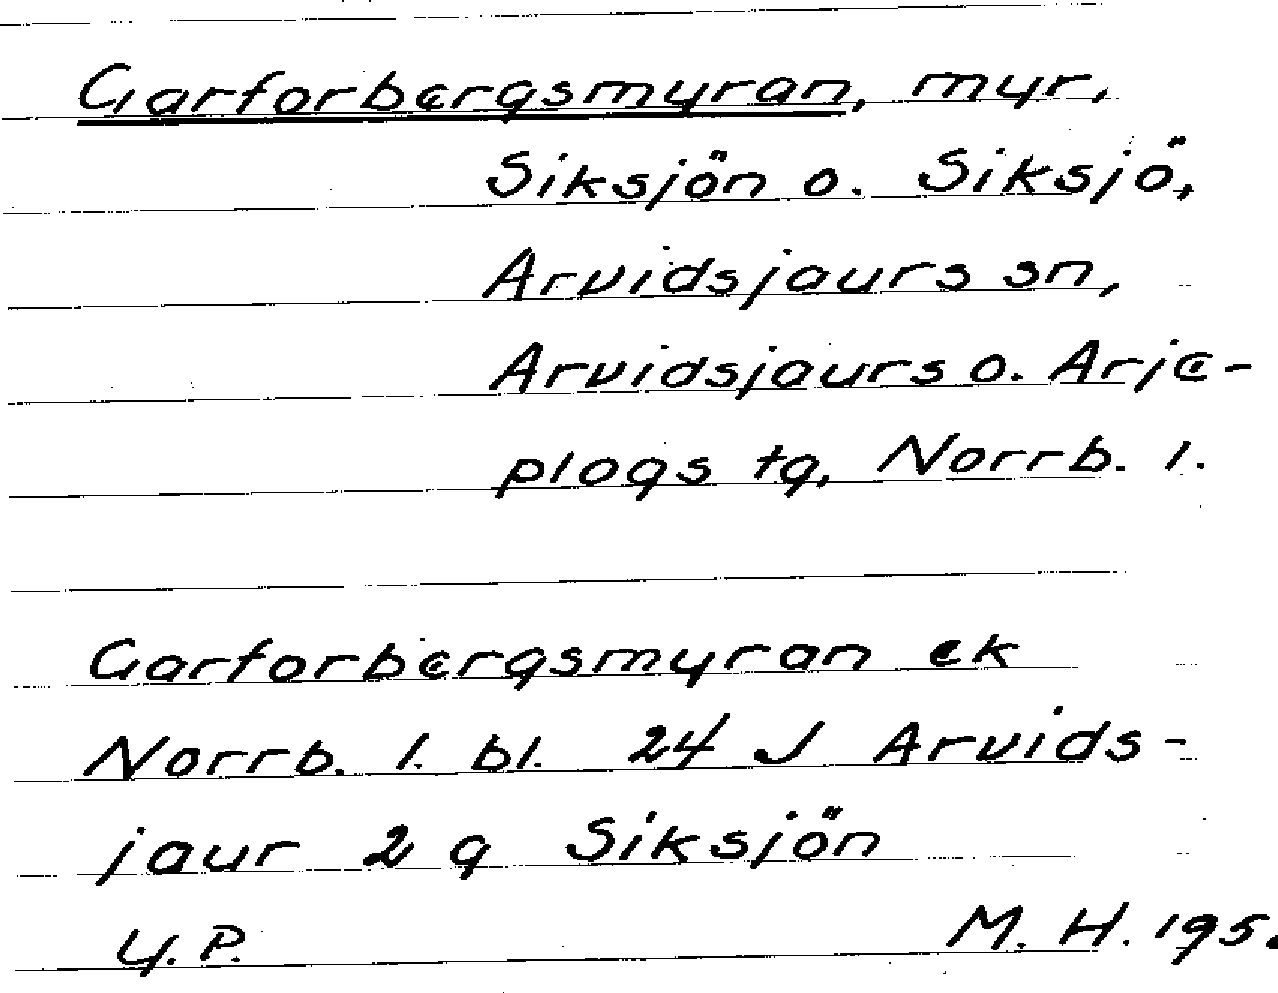 Garforbergsmyran, myr,
Siksjön o. Siksjö,
Arvidsjaurs sn,
Arvidsjaurs o. Arje-
plogs tg, Norrb. l.
Garforbergsmyran ek
Norrb. l. bl. 24 J Arvids-
jaur 2 g Siksjön
Y.P. M. H. 195.